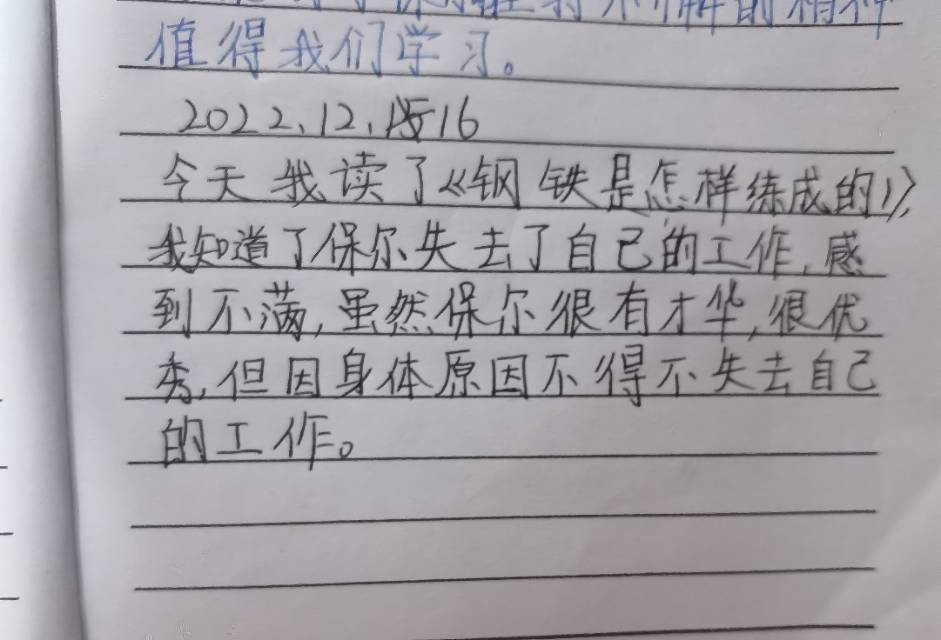 的精神
值得我们学习。
2022.12.16
今天我读了《钢铁是怎样练成的》,
我知道了保尔失去了自己的工作,感
到不满,虽然保尔很有才华,很优
秀,但因身体原因不得不失去自己
的工作。